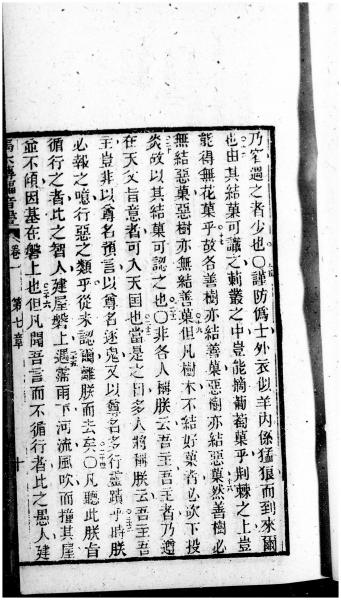 乃窄遇之者少也〇謹防偽士外衣似羊內係猛狼而到來爾
也由其結菓可識之莿叢之中豈能摘葡萄菓乎荊棘之上豈
能得無花菓乎故各善樹亦結善菓惡樹亦結惡菓然善樹必
無結惡菓惡樹亦無結善菓但凡樹木不結好菓者必砍下投
炎故以其結菓可認之也〇非各人稱朕云吾主吾主者乃遵
在天父旨意者可入天国也當是之日多人將稱朕云吾主吾
主豈非以尊名預言以尊名逐鬼又以尊名多行靈蹟乎時朕
必報之噫行惡之類乎從来認爾離朕而去矣〇凡聽此朕旨
循行之者比之智人建屋磐上遇霈雨下河流風吹而撞其屋
並不傾因基在磐上也但凡聞吾言而不循行者比之愚人建
馬太傳福音書 卷一 第七章 十